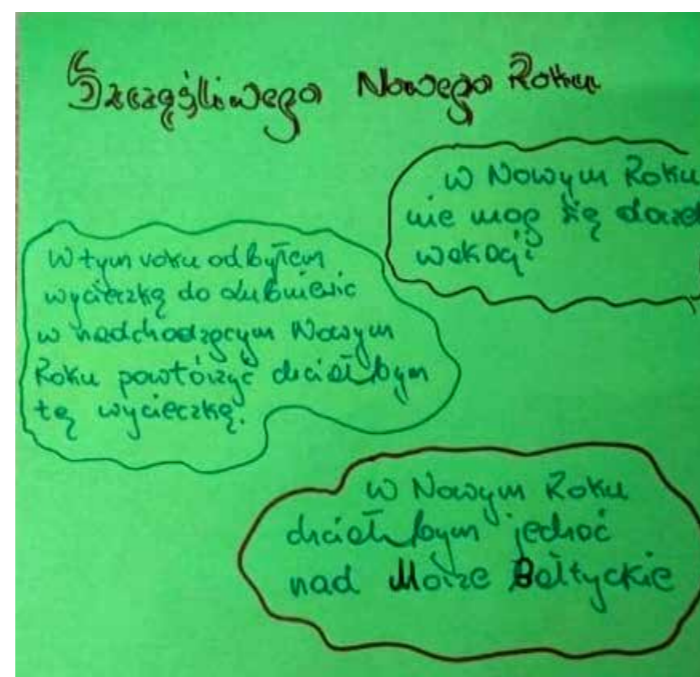 Szczęśliwego Nowego Roku
W Nowym Roku
nie mog się
wakacji
W tym roku odbyłem
wycieczkę do
w nadchodzącym Nowym
Roku powtórzyć chciałbym
tę wycieczkę.
W Nowym Roku
chciałbym jechać
nad Morze Bałtyckie